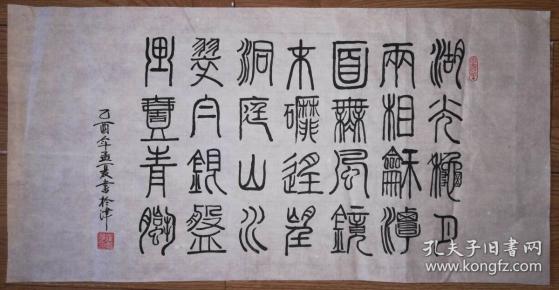 湖光秋月
兩相龢潭
面無風鏡
未磨遥望
洞庭山水
翠白銀盤
里青螺
乙酉年孟夏書於津
孔夫子旧书网
www.kongfz.com